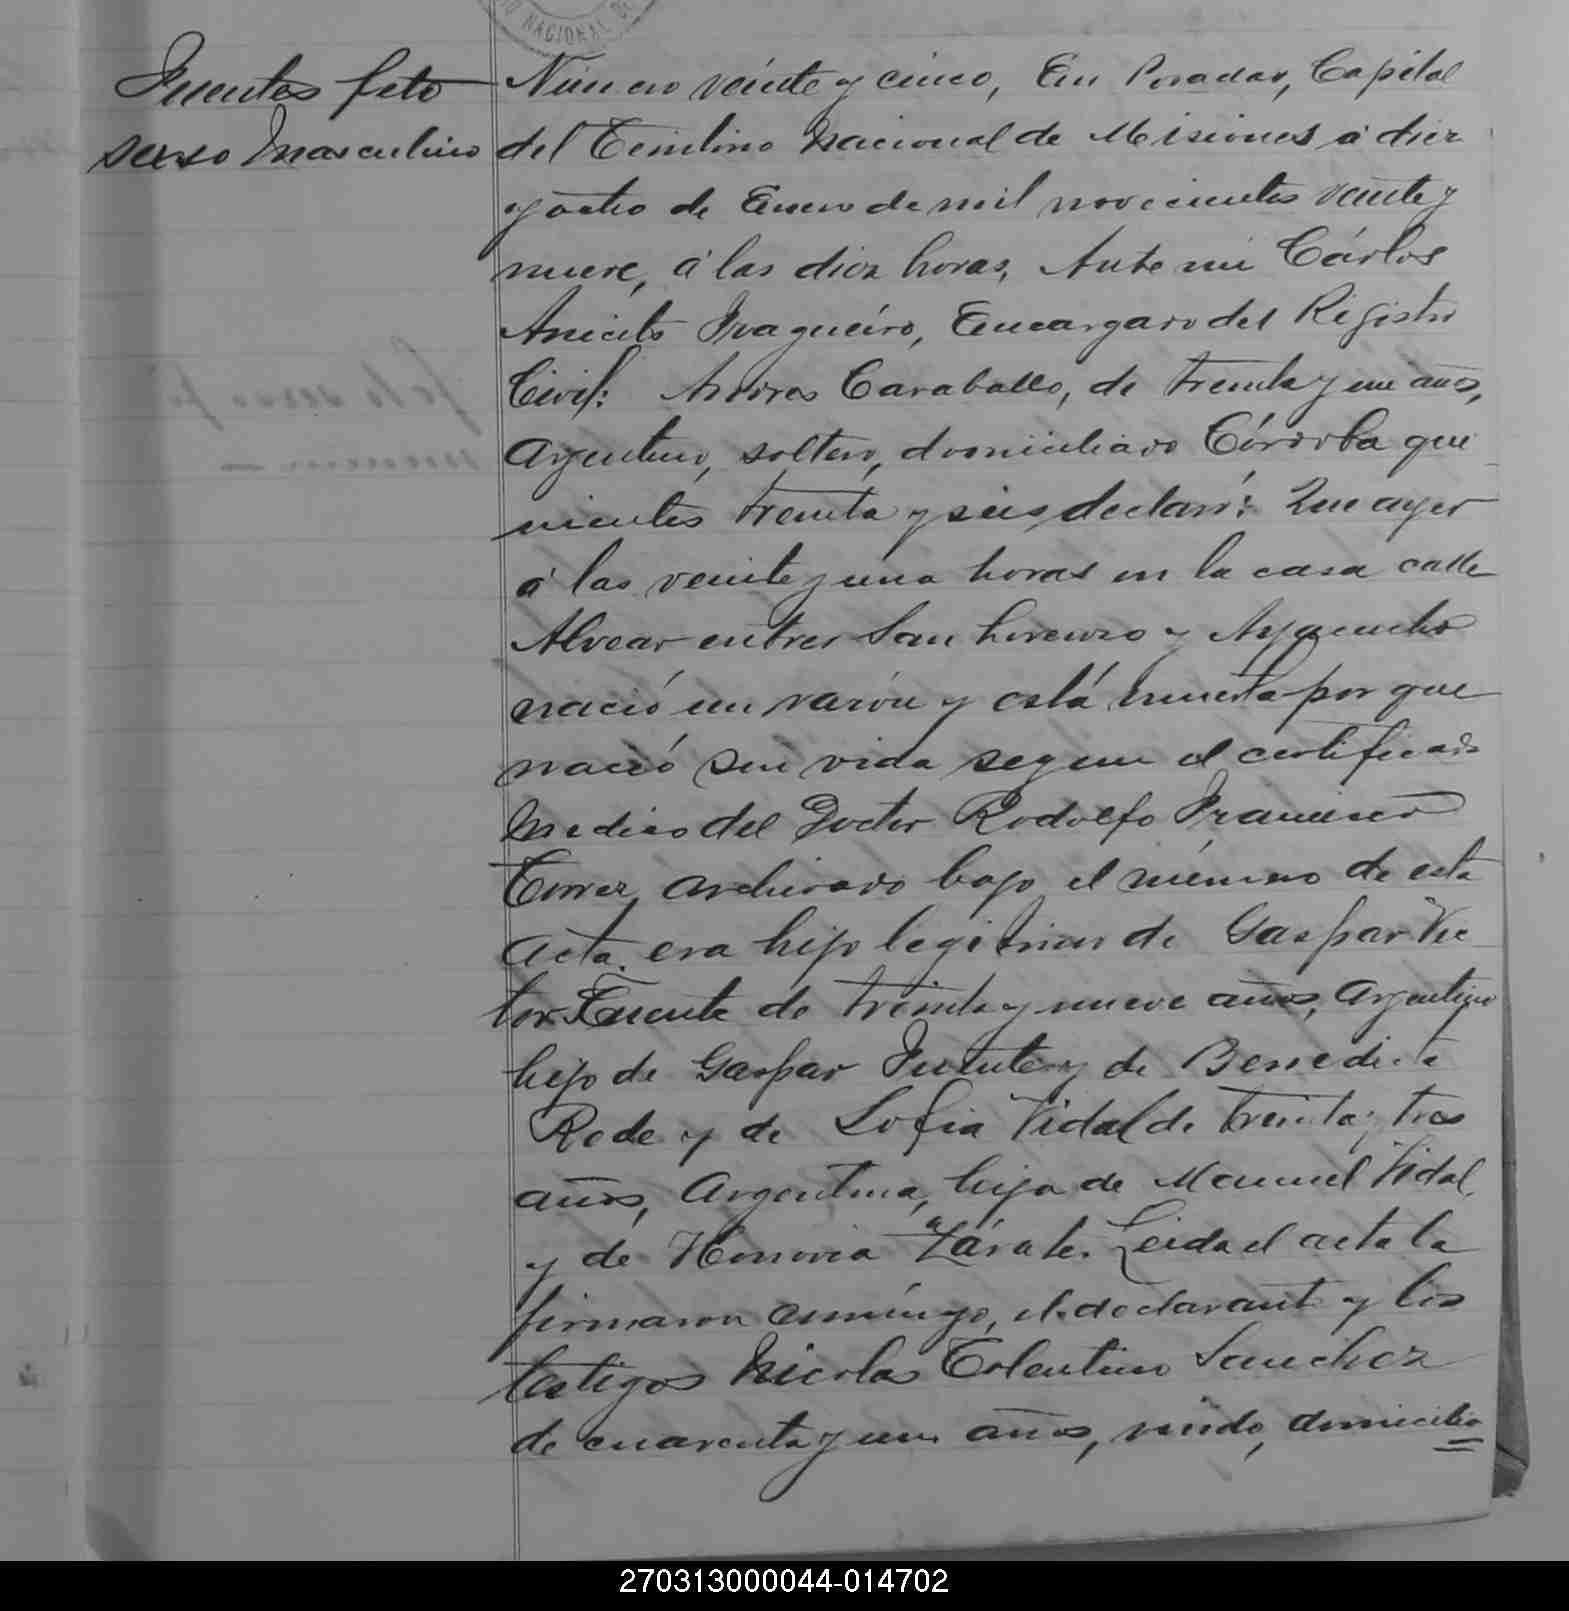 NACIONAL DE
Fuentes feto
sexo masculino
Número veinte y cinco, En Posadas, Capital
del Territorio Nacional de Misiones a diez
y ocho de Enero de mil novecientos veinte y
nueve, á las diez horas, Ante mi Cárlos
Aniceto Fragueiro, Encargado del Registro
Civil: Andres Caraballo, de treinta y un años,
Argentino, soltero, domiciliado Córdoba qui
nientos treinta y seis, declaró: Que ayer
á las veinte y una horas en la casa calle
Alvear entre San Lorenzo y Ayacucho
nació un varón y está muerto por que
nació sin vida segun el certificado
medico del Doctor Rodolfo Francisco
Torres, archivado bajo el número de esta
acta, era hijo legitimo de Gaspar Vic
tor Fuente de treinta y nueve años, Argentino
hijo de Gaspar Fuente y de Benedicta
Rode y de Sofia Vidal de treinta y tres
años, Argentina, hija de Manuel Vidal,
y de Honoria Zárate. Leida el acta la
firmaron conmigo, el declarante y los
testigos Nicolas Tolentino Sanchez
de cuarenta y un años, viudo, domicilia
270313000044-014702